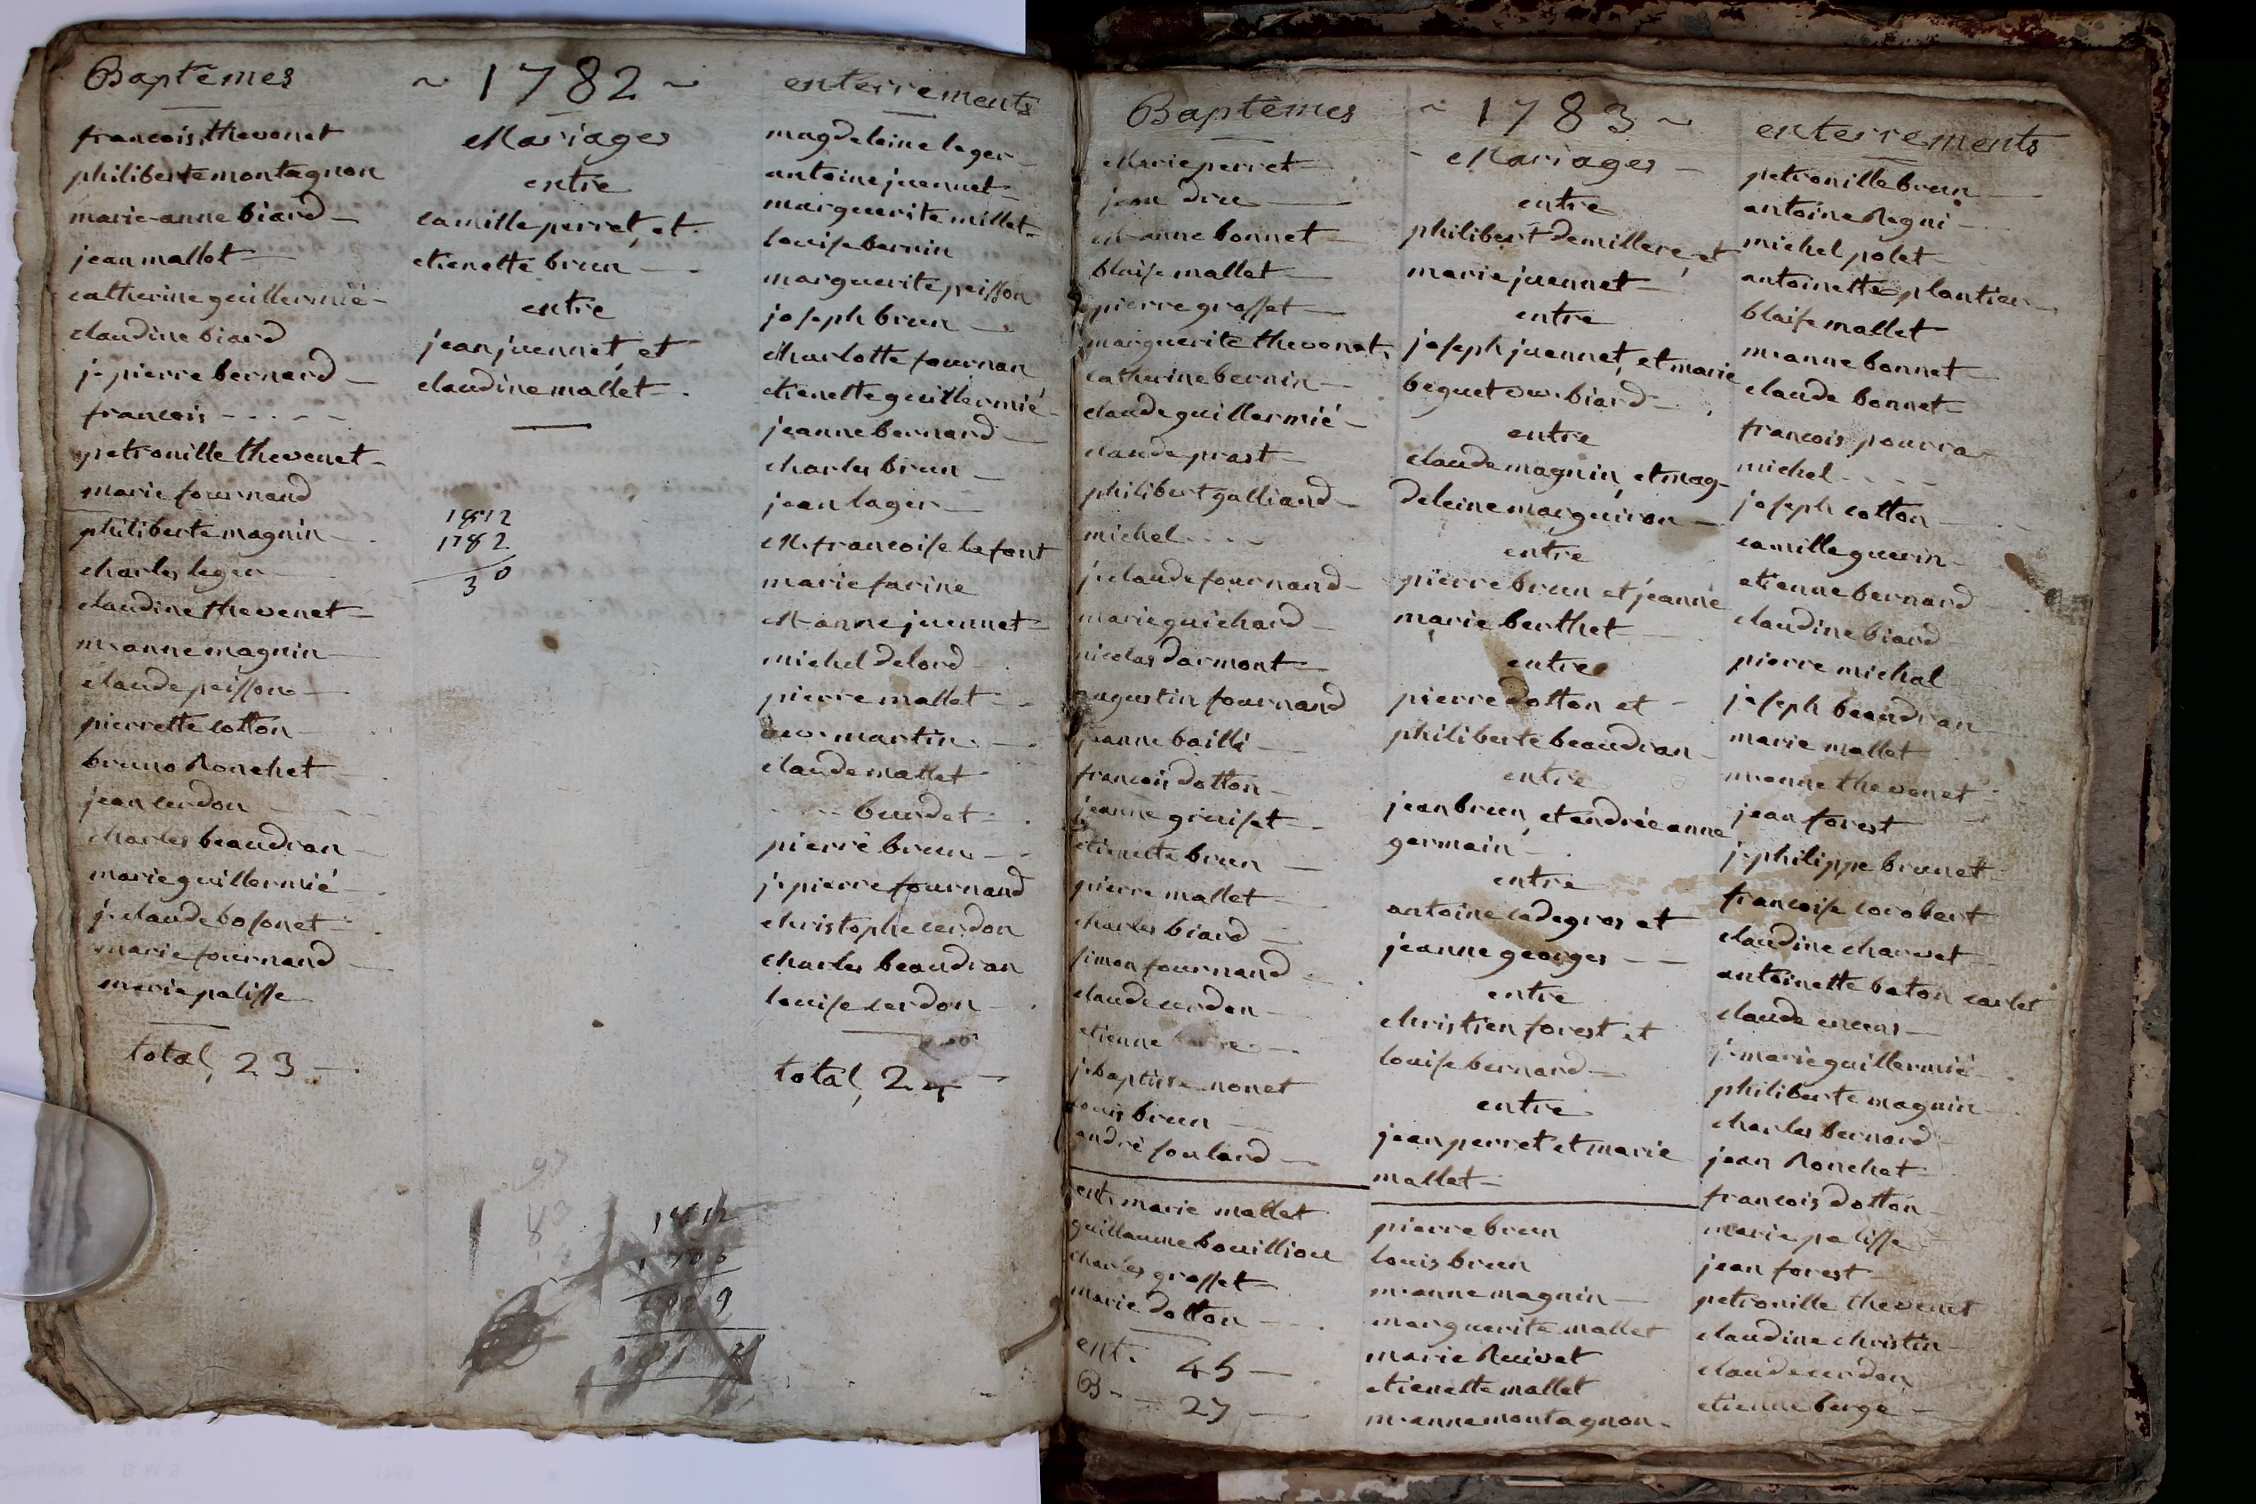 Baptêmes
francois, thevenet
philiberte montagnon
marie-anne biard
jean mallet
catherine guillermié
claudine biard
j. pierre bernard
francois - - - -
petronille thevenet
marie fournand
philiberte magnin
charles leger
claudine thevenet
m. anne magnin
claude peisson
pierrette cotton
bruno Ronchet
jean cerdon
charles beaudran
marie guillermié
j. claude bosonet
marie fournand
marie palisse
total, 23
~ 1782 ~
Mariages
entre
camille perret, et
etienette brun
entre
jean juennet, et
claudine mallet
1812
1782
30
enterrements
magdeleine leger
antoine juennet
marguerite millet
louise bernin
marguerite peisson
joseph brun
charlotte fournan
etienette guillermié
jeanne bernard
charles brun
jean lager
M. francoise lafont
marie farine
M. anne juennet
michel delord
pierre mallet
martin
claude mallet
- - - burdet
pierre brun
j. pierre fournand
christophe cerdon
charles beaudran
louise cerdon
total, 24
Baptêmes
Marie perret
jean dru
M. anne bonnet
blaise mallet
pierre grosset
marguerite thevenet
catherine bernin
claude guillermié
claude prost
philibert galliand
michel - - - -
j. claude fournand
marie guichard
nicolas darmont
augustin fournand
jeanne bailli
francois dotton
jeanne gruiset
etienette brun
pierre mallet
charles biard
simon fournand
claude cerdon
etienne
j. baptiste monet
louis brun
andré foulard
ent. marie mallet
guillaume bouilliou
charles grosset
marie dotton
ent. 45
B - - 27
~ 1783 ~
Mariages
entre
philibert demillere, et
marie juennet
entre
joseph juennet, et marie
beguet biard
entre
claude magnin, et mag-
deleine marguiron
entre
pierre brun et jeanne
marie berthet
entre
pierre dotton et
philiberte beaudran
entre
jean brun, et andrée anne
germain
entre
antoine cadegros et
jeanne georges
entre
christien forest et
louise bernard
entre
jean perret et marie
mallet
pierre brun
louis brun
m. anne magnin
marguerite mallet
marie Ruivet
etienette mallet
m. anne montagnon
enterrements
petronille brun
antoine Regni
michel polet
antoinette plantier
blaise mallet
m. anne bonnet
claude bonnet
francois pourra
michel - - - -
joseph cotton
camille guerin
etienne bernard
claudine biard
pierre michal
joseph beaudran
marie mallet
m. anne thevenet
jean forest
j. philippe brunet
francoise corobert
claudine charvet
antoinette baton carlet
claude
j. marie guillermié
philiberte magnin
charles bernard
jean Ronchet
francois dotton
marie palisse
jean forest
petronille thevenet
claudine christin
claude cerdon
etienne berge